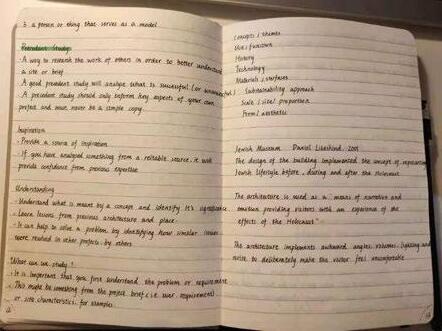 3 a person or thing that serves as a model
Precedent Study
- A way to research the work of others in order to better understand
a site or brief
- A good precedent study will analyse what is successful (or unsuccessful)
- A precedent study should only inform key aspects of your own
project and must never be a simple copy.
Inspiration
- Provide a source of inspiration
- If you have analysed something from a reliable source, it will
provide confidence from previous expertise
Understanding
- Understand what is meant by a concept and identify it's significance
- Learn lessons from previous architecture and place
- It can help to solve a problem by identifying how similar issues
were resolved in other projects by others
What can we study?
- It is important that you first understand the problem or requirement
- This might be something from the project brief (i.e. user requirement)
or site characteristics for examples
Concepts / themes
Use / function
History
Technology
Materials / surfaces
Sustainability approach
Scale / size / proportion
Form / aesthetic
Jewish Museum Daniel Libeskind 2001
The design of the building implemented the concept of representing
Jewish lifestyle before, during and after the Holocaust
The architecture is used as a "means of narrative and
emotion providing visitors with an experience of the
effects of the Holocaust"
The architecture implements awkward angles, volumes, lighting and
noise to deliberately make the visitor feel uncomfortable